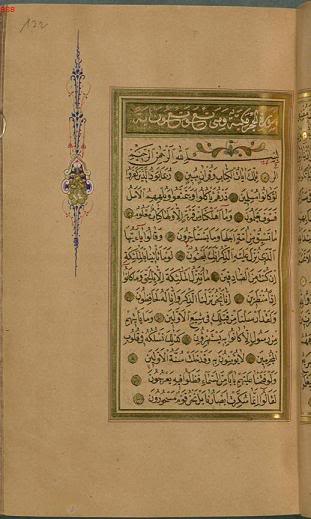 132
سورة الحجر مكية وهي تسع وتسعون آية
بسم الله الرحمن الرحيم
الر تلك آيات الكتاب وقرآن مبين ربما يود الذين كفروا
لو كانوا مسلمين ذرهم يأكلوا ويتمتعوا ويلههم الأمل
فسوف يعلمون وما أهلكنا من قرية إلا ولها كتاب معلوم
ما تسبق من أمة أجلها وما يستأخرون وقالوا يا أيها
الذي نزل عليه الذكر إنك لمجنون لو ما تأتينا بالملائكة
إن كنت من الصادقين ما ننزل الملائكة إلا بالحق وما كانوا
إذا منظرين إنا نحن نزلنا الذكر وإنا له لحافظون
ولقد أرسلنا من قبلك في شيع الأولين وما يأتيهم
من رسول إلا كانوا به يستهزؤن كذلك نسلكه في قلوب
المجرمين لا يؤمنون به وقد خلت سنة الأولين
ولو فتحنا عليهم بابا من السماء فظلوا فيه يعرجون
لقالوا إنما سكرت أبصارنا بل نحن قوم مسحورون